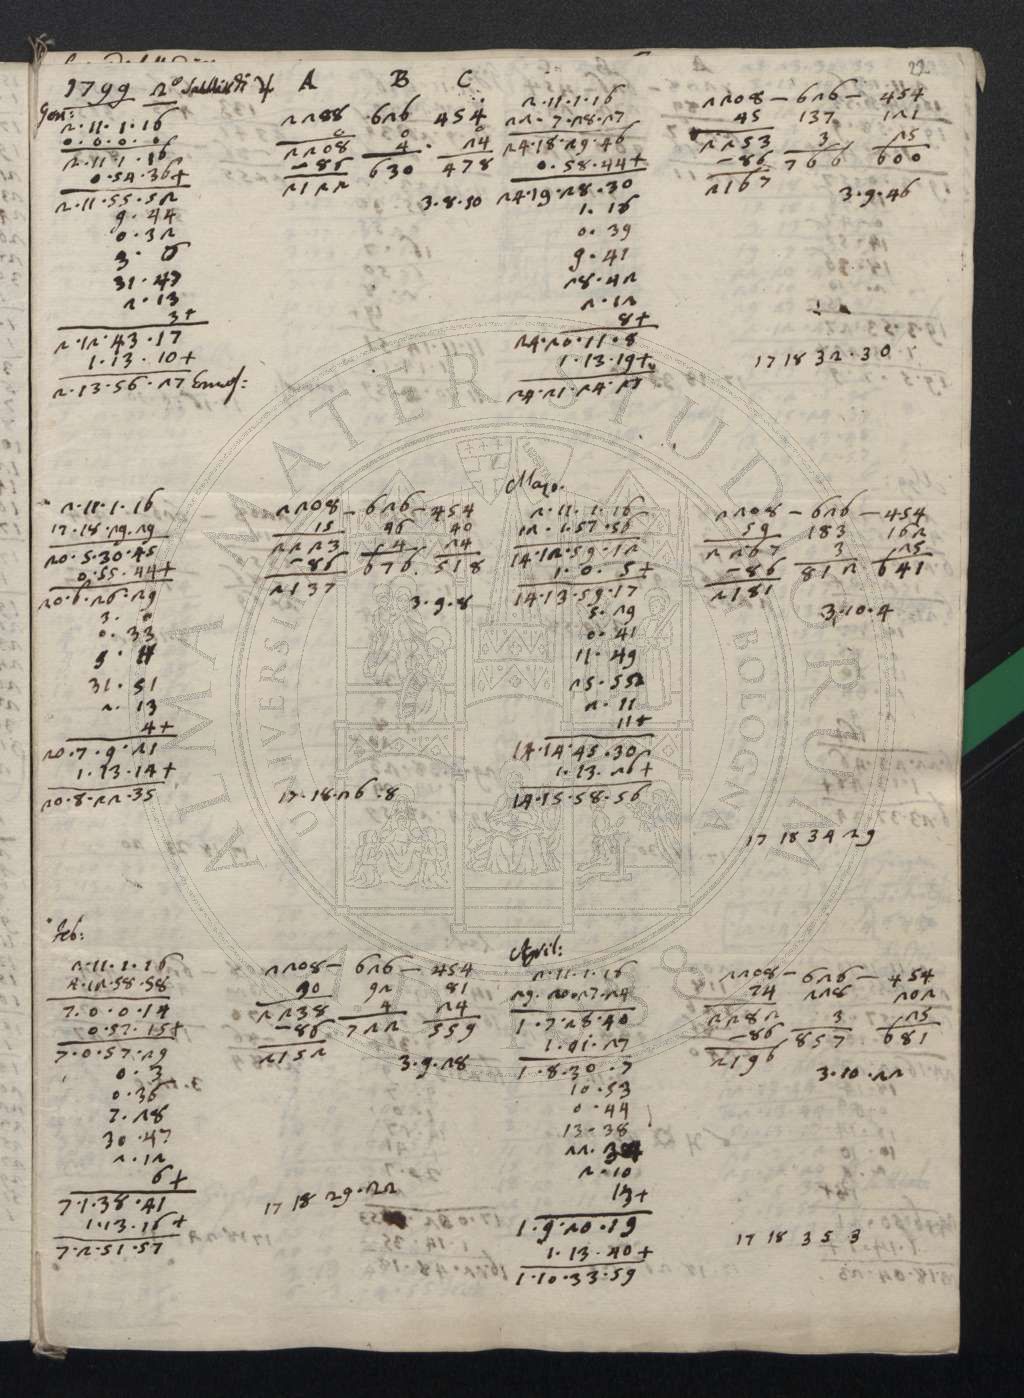 22
1799
A B C
Gen:
2.11.1.16
0.0.0.0
2.11.1.16
0.54.36+
2.11.55.52
9.44
0.32
3.6
31.47
2.13
3+
2.12.43.17
1.13.10+
2.13.56.27
2208 626 454
0 0 0
2208 4 24
-86 630 478
2122
3.8.30
2.11.1.16
22.7.28.27
24.18.29.46
0.58.44+
24.19.28.30
1.16
0.39
9.41
28.42
2.12
8+
24.20.11.8
1.13.19+
24.21.24.27
2208 - 626 - 454
45 137 121
2253 3 25
-86 766 600
2167
3.9.46
17 18 32.30
2.11.1.16
17.18.29.29
20.5.30.45
0.55.44+
20.6.26.29
3.0
0.33
5.11
31.51
2.13
4+
20.7.9.21
1.13.14+
20.8.22.35
2208 - 626 - 454
15 46 40
2223 4 24
-86 676 518
2137
3.9.8
17.18.26.8
Majo.
2.11.1.16
12.1.57.56
14.12.59.12
1.0.5+
14.13.59.17
5.29
0.41
11.49
25.52
2.11
11+
14.14.45.30
1.13.26+
14.15.58.56
2208 - 626 - 454
59 183 162
2267 3 25
-86 812 641
2181
3.10.4
17 18 34 29
Feb:
2.11.1.16
4.12.58.58
7.0.0.14
0.57.15+
7.0.57.29
0.3
0.36
7.28
30.47
2.12
6+
7.1.38.41
1.13.16+
7.2.51.57
2208 - 626 - 454
30 92 81
2238 4 24
-86 722 559
2152
3.9.28
17 18 29.22
April:
2.11.1.16
29.20.27.24
1.7.28.40
1.01.27
1.8.30.7
10.53
0.44
13.38
22.34
2.10
13+
1.9.20.19
1.13.40+
1.10.33.59
2208 - 626 - 454
74 228 202
2282 3 25
-86 857 681
2196
3.10.22
17 18 35 3
ALMA MATER STUDIORUM
UNIVERSITÀ DI BOLOGNA
1088